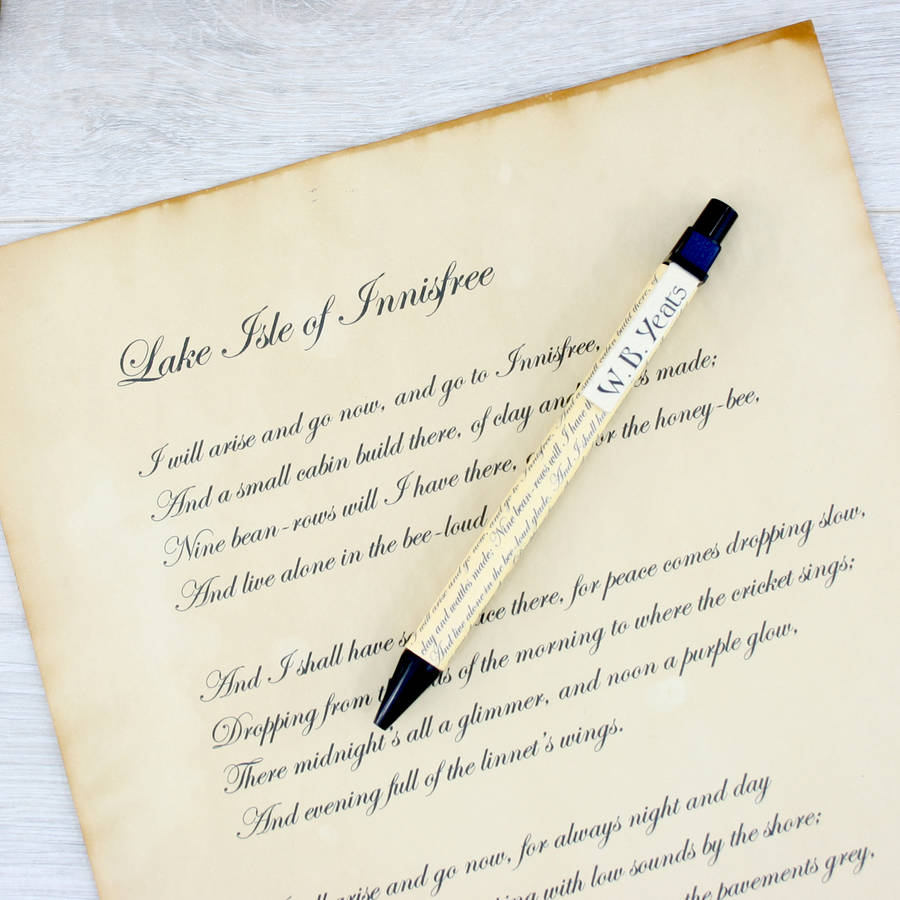 Lake Isle of Innisfree
I will arise and go now, and go to Innisfree,
And a small cabin build there, of clay and made;
Nine bean-rows will I have there, for the honey-bee,
And live alone in the bee-loud
And I shall have there, for peace comes dropping slow,
Dropping from of the morning to where the cricket sings;
There midnight's all a glimmer, and noon a purple glow,
And evening full of the linnet's wings.
arise and go now, for always night and day
with low sounds by the shore;
the pavements grey,
W. B. Yeats
small cabin build there, of
I will arise and go now, and go to Innisfree, And a
clay and wattles made; Nine bean-rows will I have th
And live alone in the bee-loud glade. And I shall ha